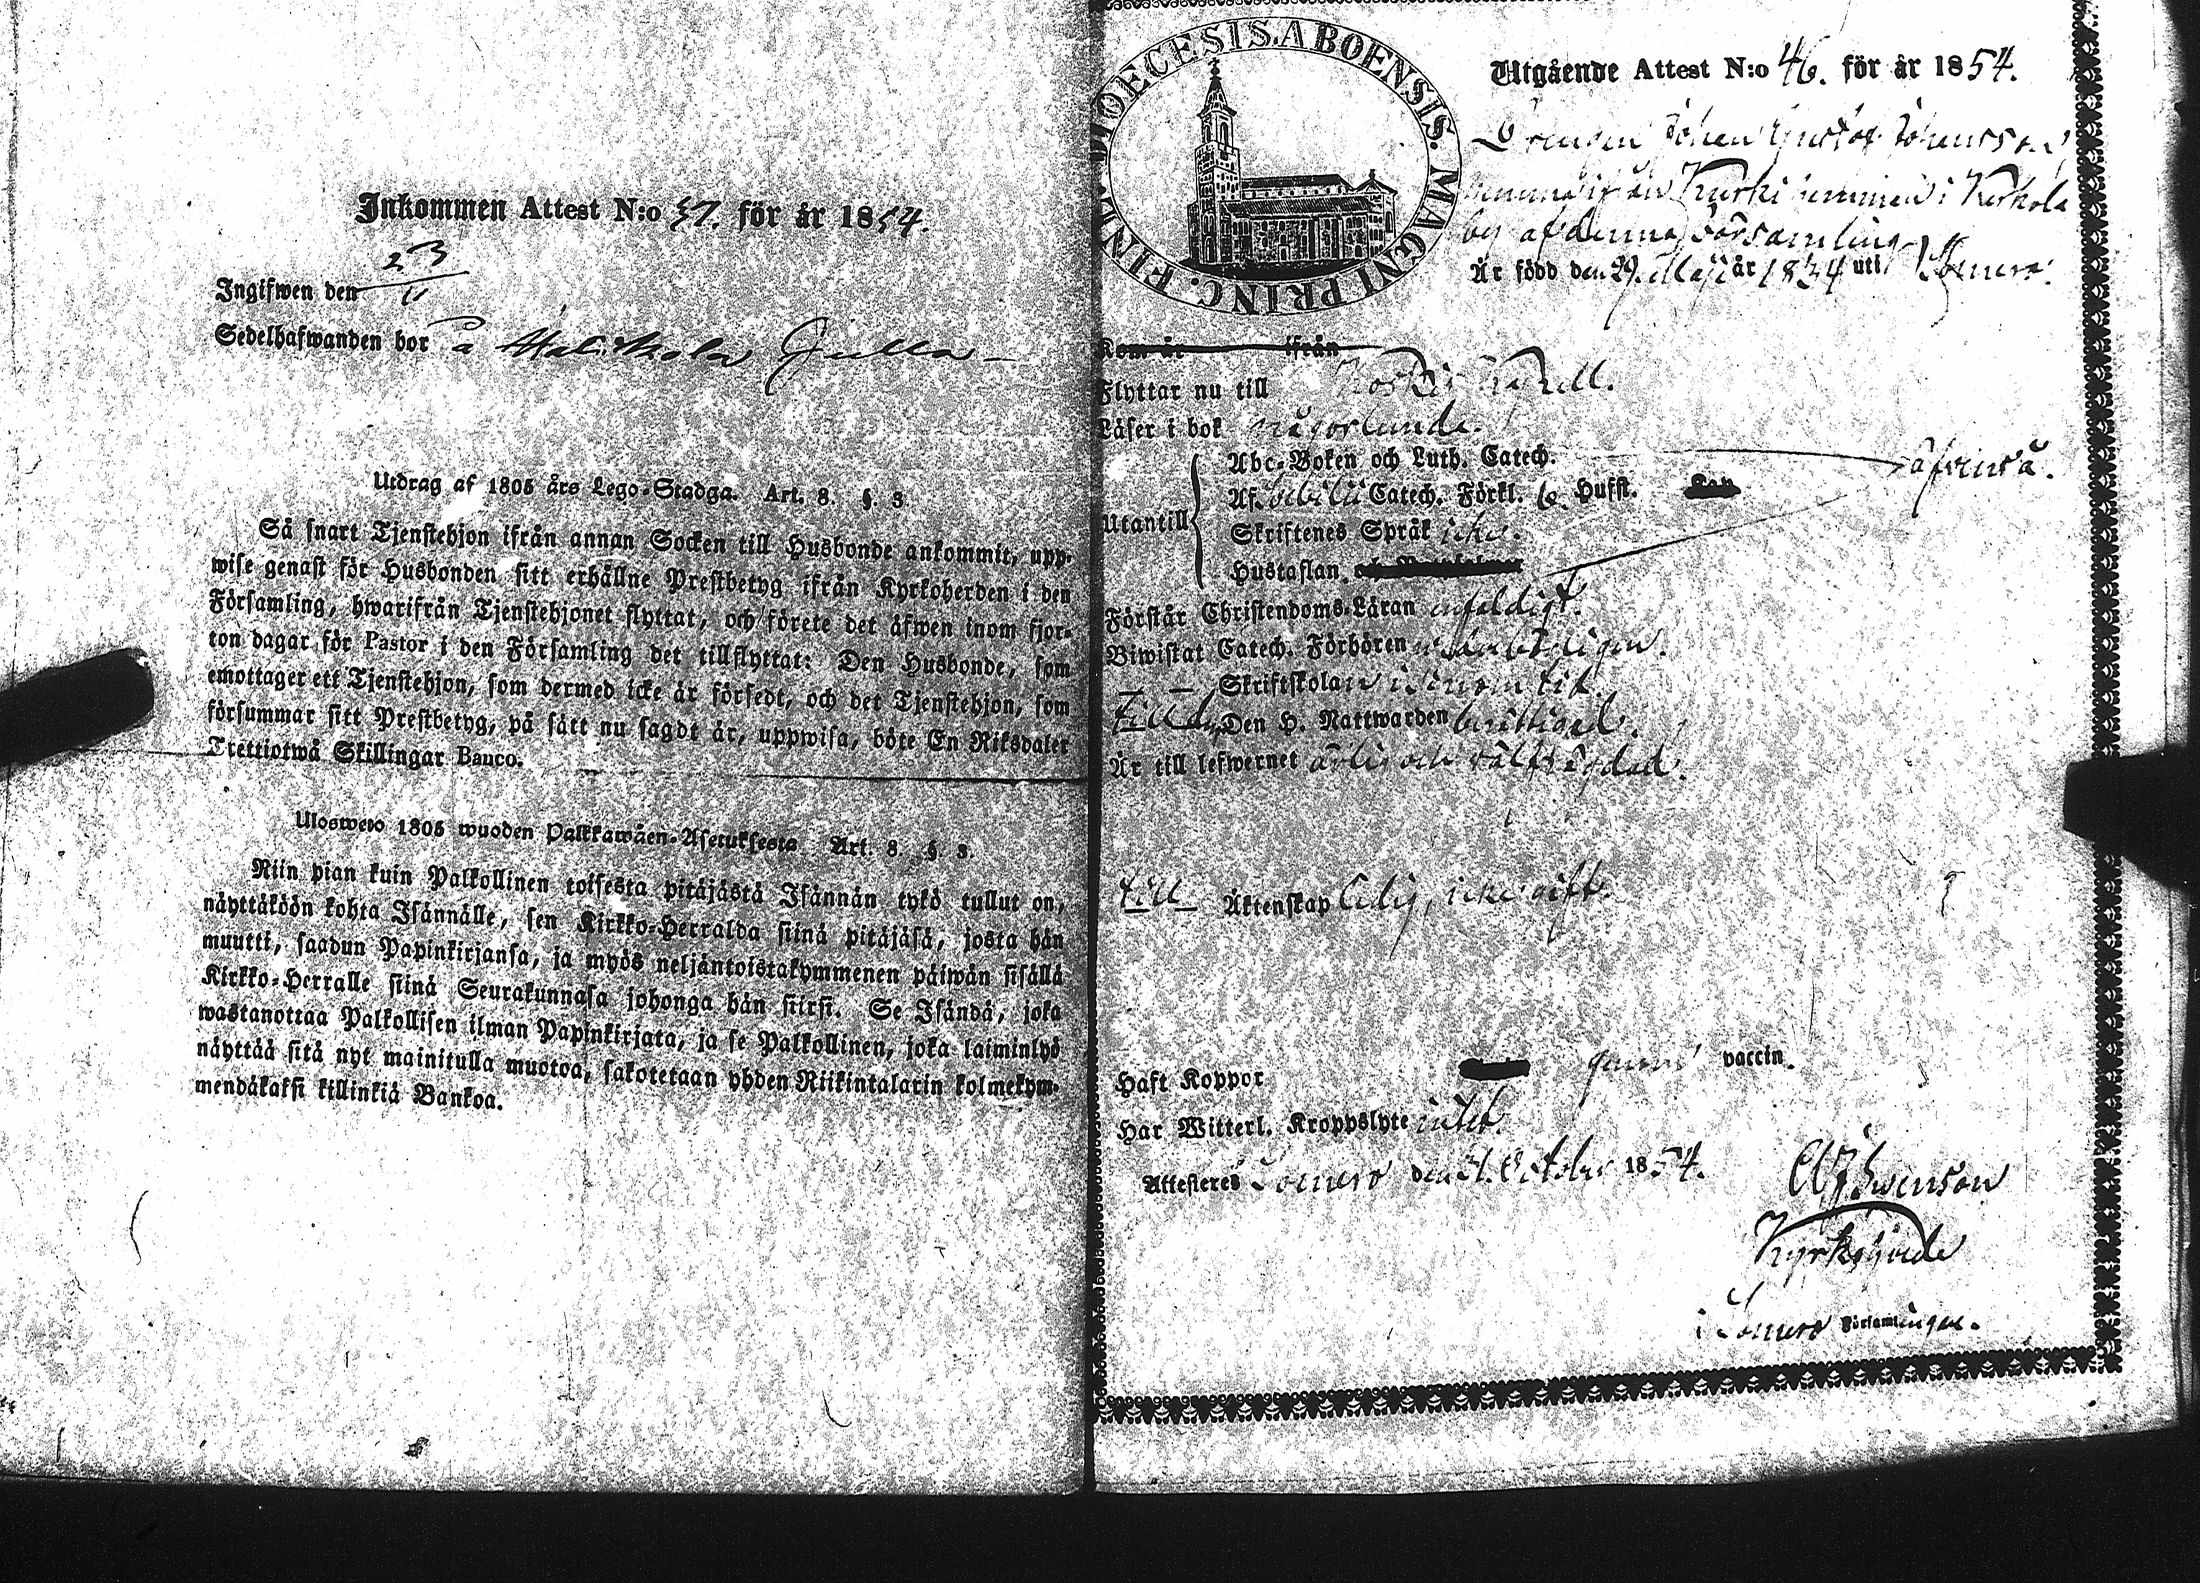 Inkommen Attest N:o 57. för år 1854.
Ingifwen den 23/11
Sedelhafwanden bor på
Utdrag af 1805 års Lego-Stadga. Art. 8. §. 3.
Så snart Tjenstehjon ifrån annan Socken till Husbonde ankommit, upp-
wise genast för Husbonden sitt erhållne Prestbetyg ifrån Kyrkoherden i den
Församling, hwarifrån Tjenstehjonet flyttat, och förete det äfwen inom fjor-
ton dagar för Pastor i den Församling det tillflyttat: Den Husbonde, som
emottager ett Tjenstehjon, som dermed icke är försedt, och det Tjenstehjon, som
försummar sitt Prestbetyg, på sätt nu sagdt är, uppwisa, böte En Riksdaler
Trettiotwå Skillingar Banco.
Ulosweto 1805 wuoden Palkkawäen-Asetuksesta Art. 8. §. 3.
Niin pian kuin Palkollinen toisesta pitäjästä Isännän tykö tullut on,
näyttäköön kohta Isännälle, sen Kirkko-Herralda siinä pitäjäsä, josta hän
muutti, saadun Papinkirjansa, ja myös neljäntoistakymmenen päiwän sisällä
Kirkko-Herralle siinä Seurakunnasa johonga hän siirsi. Se Isändä, joka
wastanottaa Palkollisen ilman Papinkirjata, ja se Palkollinen, joka laiminlyö
näyttää sitä nyt mainitulla muotoa, sakotetaan yhden Riikintalarin kolmekym-
mendäkaksi killinkiä Bankoa.
DIOECESIS. ABOENSIS. MAGNI PRINC. FINL.
Utgående Attest N:o 46. för år 1854.
Drengen Johan Gustaf Johansson,
Kurki hemman i Kerkola
by af denna Församling
År född den 29. Maji år 1834 uti Somero.
Kom år ifrån
Flyttar nu till Koskis Kapell.
Läser i bok någorlunda.
Utantill
Abc-Boken och Luth. Catech.
Af Sebelii Catech. Förkl. 6. Hufst.
äfvenså.
Skriftenes Språk icke.
Hustaflan.
Förstår Christendoms-Läran enfaldigt.
Biwistat Catech. Förhören
— — Skriftskolan i sinom tid.
Den H. Nattwarden berättigad.
Är till lefwernet ärlig och välfrägdad.
till Äktenskap ledig, icke gift.
Haft Koppor genom vaccin.
Har Witterl. Kroppslyte intet.
Attesteres Somero den 31. October 1854.
Swenson
Kyrkoherde
i Somero Församlingen.